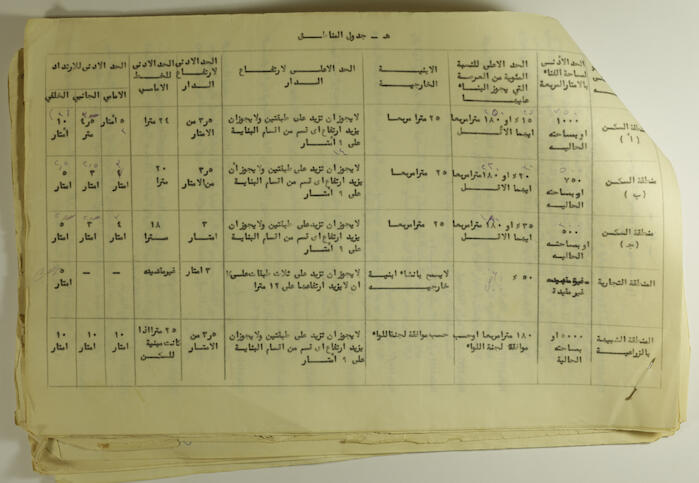 هـ - جدول المناطق
الحد الأدنى لساحة الفناء بالامتار المربعة
الحد الاعلى للنسبة المئوية من العرصة التي يجوز البناء عليها
الابنية الخارجية
الحد الاعلى لارتفاع الدار
الحد الادنى لارتفاع الدار
الحد الادنى للخط الاساسي
الحد الادنى للارتداد
الامامي الجانبي الخلفي
منطقة السكن (أ)
١٠٠٠ او بساحته الحاليه
١٥٪ او ١٨٠ مترا مربعا ايهما الاقل
٢٥ مترا مربعا
لا يجوز ان تزيد على طبقتين ولا يجوز ان يزيد ارتفاع اى قسم من اقسام البناية على ٩ امتار
٣٫٥ من الامتار
٢٤ مترا
٥ امتار
٤٫٥ متر
١٠ امتار
منطقة السكن (ب)
٧٥٠ او بساحته الحاليه
٢٠٪ او ١٨٠ مترا مربعا ايهما الاقل
٢٥ مترا مربعا
لا يجوز ان تزيد على طبقتين ولا يجوز أن يزيد ارتفاع اى قسم من اقسام البناية على ٩ امتار
٣٫٥ من الامتار
٢٠ مترا
٤ امتار
٣ امتار
٥ امتار
منطقة السكن (جـ)
٥٠٠ او بساحته الحاليه
٣٥٪ او ١٨٠ مترا مربعا ايهما الاقل
٢٥ مترا مربعا
لا يجوز ان تزيد على طبقتين ولا يجوز ان يزيد ارتفاع اى قسم من اقسام البناية على ٩ امتار
٣ امتار
١٨ مترا
٤ امتار
٣ امتار
٥ امتار
المنطقة التجارية
غير مقيدة
٥٠٪
لا يسمح بانشاء ابنية خارجيه
لا يجوز ان تزيد على ثلاث طبقات على ان لا يزيد ارتفاعها على ١٢ مترا
٣ امتار
غير مقيده
—
—
٥ امتار
المنطقة الشبيهة بالزراعية
٥٠٠٠ او بساحته الحالية
١٨٠ مترا مربعا او حسب موافقة لجنة اللواء
حسب موافقة لجنة اللواء
لا يجوز ان تزيد على طبقتين ولا يجوز ان يزيد ارتفاع اى قسم من اقسام البناية على ٩ امتار
٣٫٥ من الامتار
٢٥ مترا اذا كانت مبنية للسكن
١٠ امتار
١٠ امتار
١٠ امتار